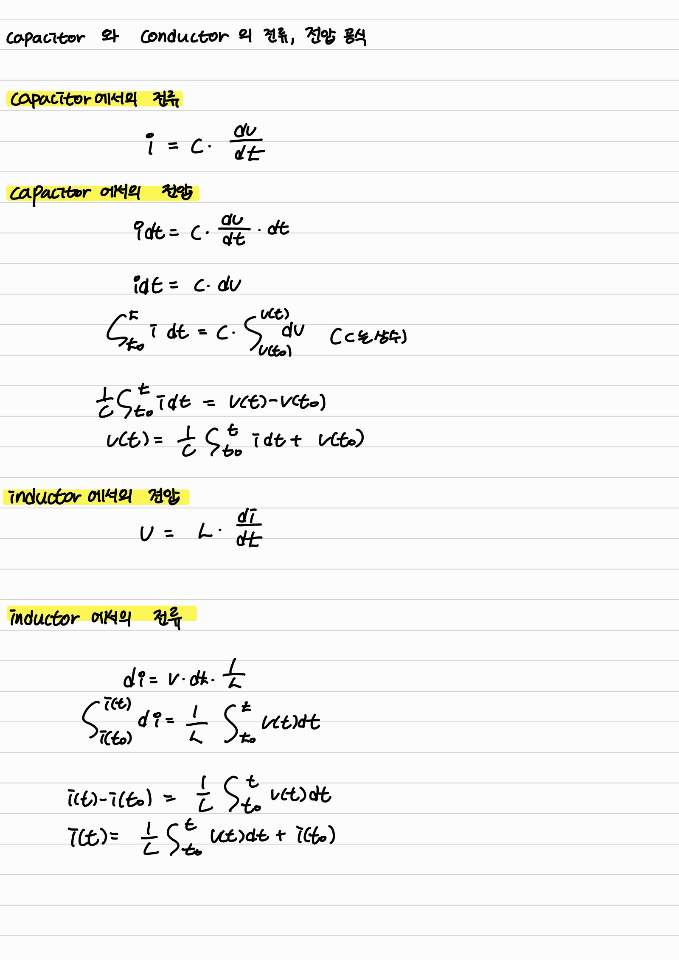 capacitor 와 conductor 의 전류, 전압 공식
capacitor에서의 전류
i = C · du/dt
capacitor 에서의 전압
idt = C · du/dt · dt
idt = C · du
∫_{t₀}^{t} i dt = C · ∫_{v(t₀)}^{v(t)} du (C는 상수)
1/C ∫_{t₀}^{t} idt = v(t)-v(t₀)
v(t) = 1/C ∫_{t₀}^{t} idt + v(t₀)
inductor에서의 전압
v = L · di/dt
inductor 에서의 전류
di = v · dt · 1/L
∫_{i(t₀)}^{i(t)} di = 1/L ∫_{t₀}^{t} v(t)dt
i(t)-i(t₀) = 1/L ∫_{t₀}^{t} v(t)dt
i(t) = 1/L ∫_{t₀}^{t} v(t)dt + i(t₀)